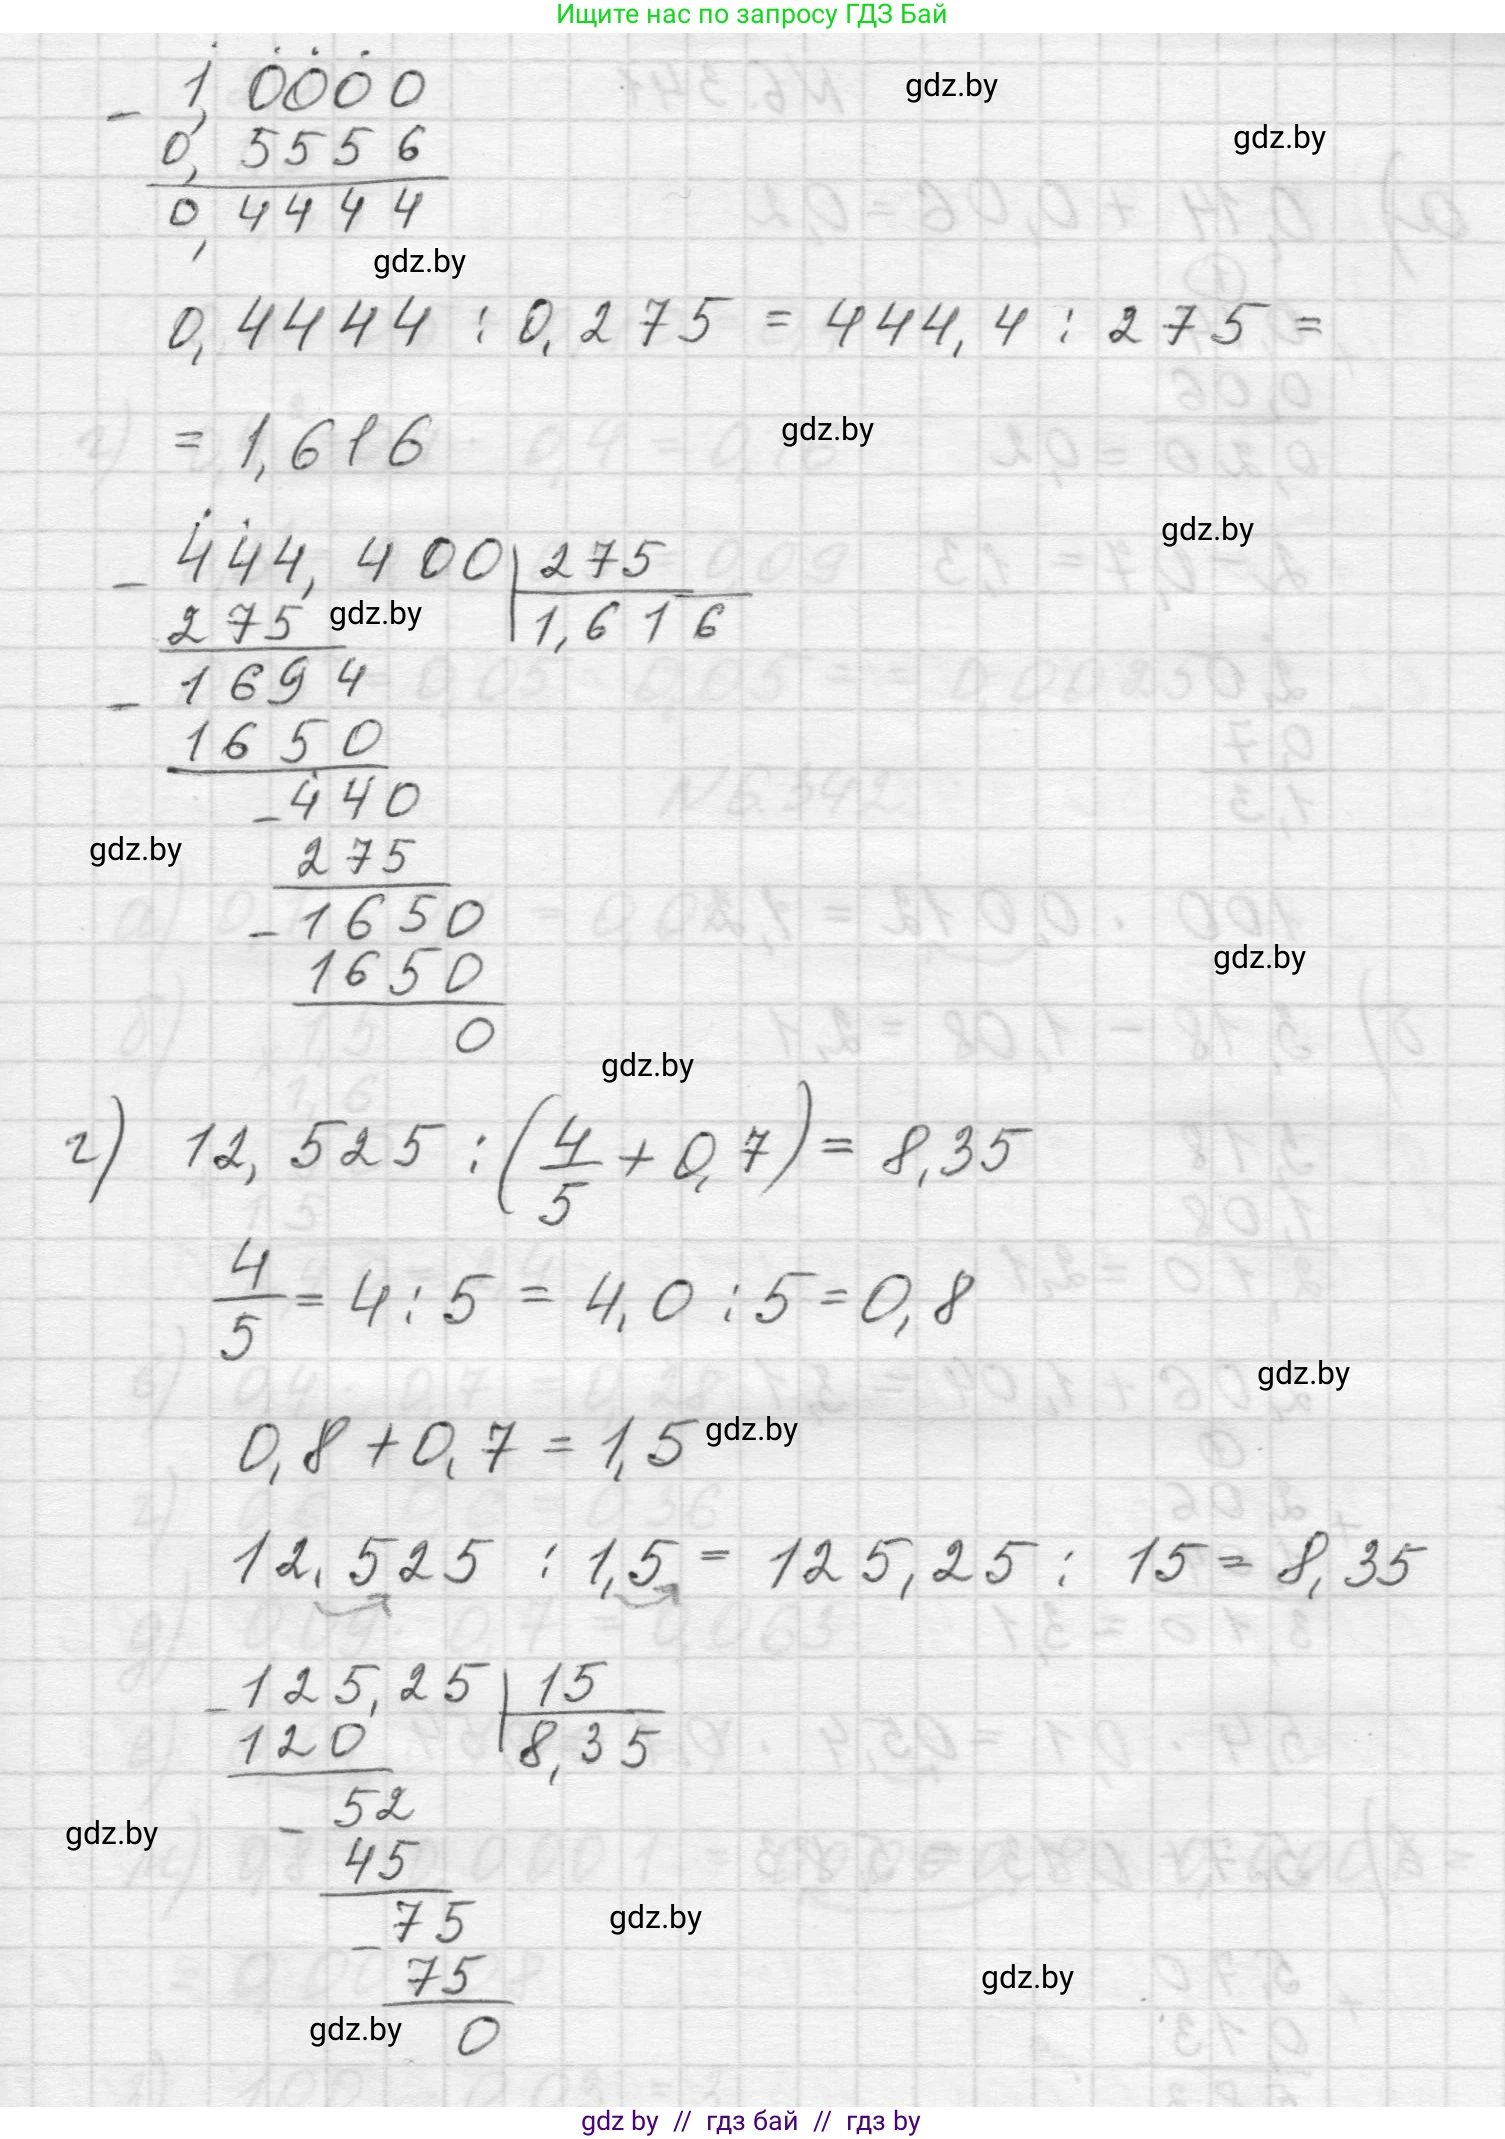 Ищите нас по запросу ГДЗ Бай
1,0000
gdz.by
gdz.by
- 0,5556
0,4444
gdz.by
0,4444 : 0,275 = 444,4 : 275 =
= 1,616
gdz.by
gdz.by
- 444,400 | 275
275 1,616
gdz.by
- 1694
1650
- 440
gdz.by
275
- 1650
gdz.by
1650
0
gdz.by
г) 12,525 : (4/5 + 0,7) = 8,35
4/5 = 4 : 5 = 4,0 : 5 = 0,8
gdz.by
0,8 + 0,7 = 1,5
gdz.by
12,525 : 1,5 = 125,25 : 15 = 8,35
- 125,25 | 15
120 8,35
- 52
gdz.by
45
- 75
gdz.by
75
gdz.by
gdz.by
0
gdz by // гдз бай // гдз by